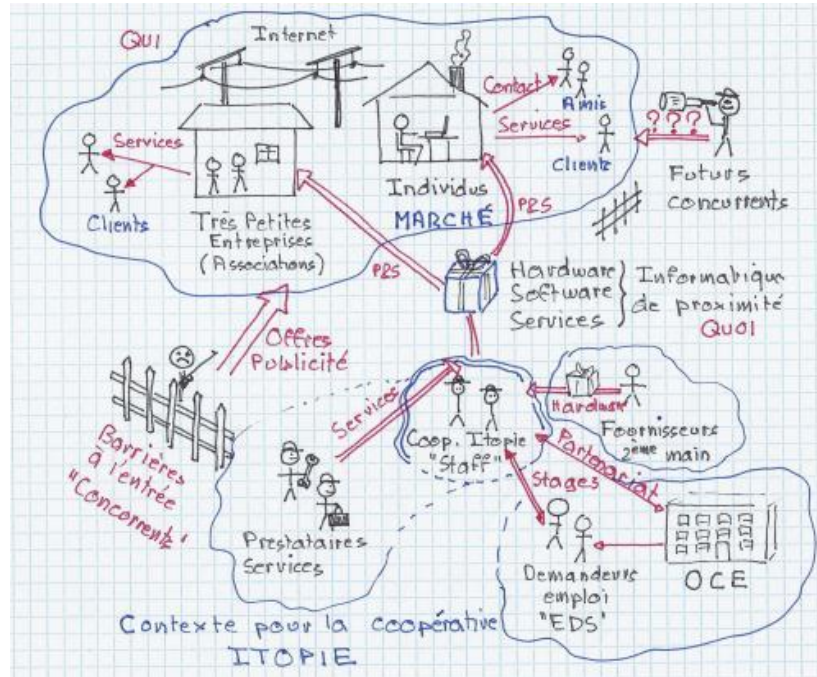 QUI
Internet
Contact
Amis
Services
Clients
? ? ?
Futurs
concurrents
Services
Clients
Très Petites
Entreprises
(Associations)
Individus
MARCHÉ
P&S
P&S
Hardware
Software
Services
Informatique
de proximité
QUOI
Offres
Publicité
Barrières
à l'entrée
"Concurrents"
Services
Coop. Itopie
"Staff"
Hardware
Fournisseurs
2ème main
Partenariat
Stages
Prestataires
Services
Demandeurs
emploi
"EDS"
OCE
Contexte pour la coopérative
ITOPIE